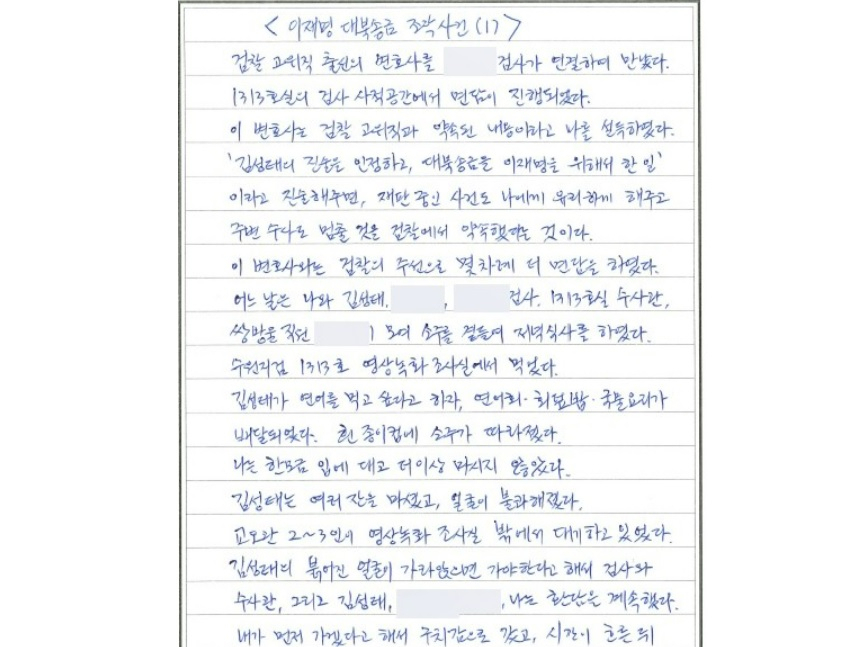 < 이재명 대북송금 조작사건 (1) >
검찰 고위직 출신의 변호사를 검사가 연결하여 만났다.
1313호실의 검사 사적공간에서 면담이 진행되었다.
이 변호사는 검찰 고위직과 약속된 내용이라고 나를 설득하였다.
'김성태의 진술을 인정하고, 대북송금을 이재명을 위해서 한 일'
이라고 진술해주면, 재판 중인 사건도 나에게 유리하게 해주고
주변 수사도 멈출 것을 검찰에서 약속했다는 것이다.
이 변호사와는 검찰의 주선으로 몇차례 더 면담을 하였다.
어느 날은 나와 김성태, , 검사, 1313호실 수사관,
쌍방울 직원 이 모여 소주를 곁들여 저녁식사를 하였다.
수원지검 1313호 영상녹화 조사실에서 먹었다.
김성태가 연어를 먹고 싶다고 하자, 연어회·회덮밥·국물요리가
배달되었다. 흰 종이컵에 소주가 따라졌다.
나는 한모금 입에 대고 더이상 마시지 않았다.
김성태는 여러 잔을 마셨고, 얼굴이 불콰해졌다.
교도관 2~3인이 영상녹화 조사실 밖에서 대기하고 있었다.
김성태의 붉어진 얼굴이 가라앉으면 가야한다고 해서 검사와
수사관, 그리고 김성태, , 나는 환담을 계속했다.
내가 먼저 가겠다고 해서 구치감으로 갔고, 시간이 흐른 뒤